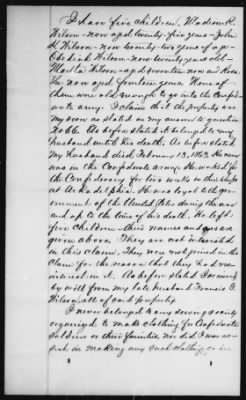 I have five children, Madison R.
Wilson - now aged twenty-five years - John
R. Wilson - now twenty-two years of age -
Obediah Wilson - now twenty years old -
Martha Wilson - aged seventeen now and
now aged fourteen years. None of
them were old enough to go into the Confed-
erate army. I claim that the property was
my own as stated in my answer to question
No 66. As before stated it belonged to my
husband until his death. As before stated
my husband died, February 13, 1863. He never
was in the Confederate army. He worked for
the Confederacy for six weeks in their shops
at Arkadelphia. He was loyal to the gov-
ernment of the United States during the war
and up to the time of his death. He left
five children - their names and ages are
given above. They are not interested
in this claim. They were not joined in the
claim for the reason that they had no
interest in it. As before stated I owned
by will from my late husband Francis C.
Wilson, all of said property.
I never belonged to any sewing society
organized to make clothing for Confederate
soldiers or their families, nor did I ever as-
sist in making any such clothing, or in